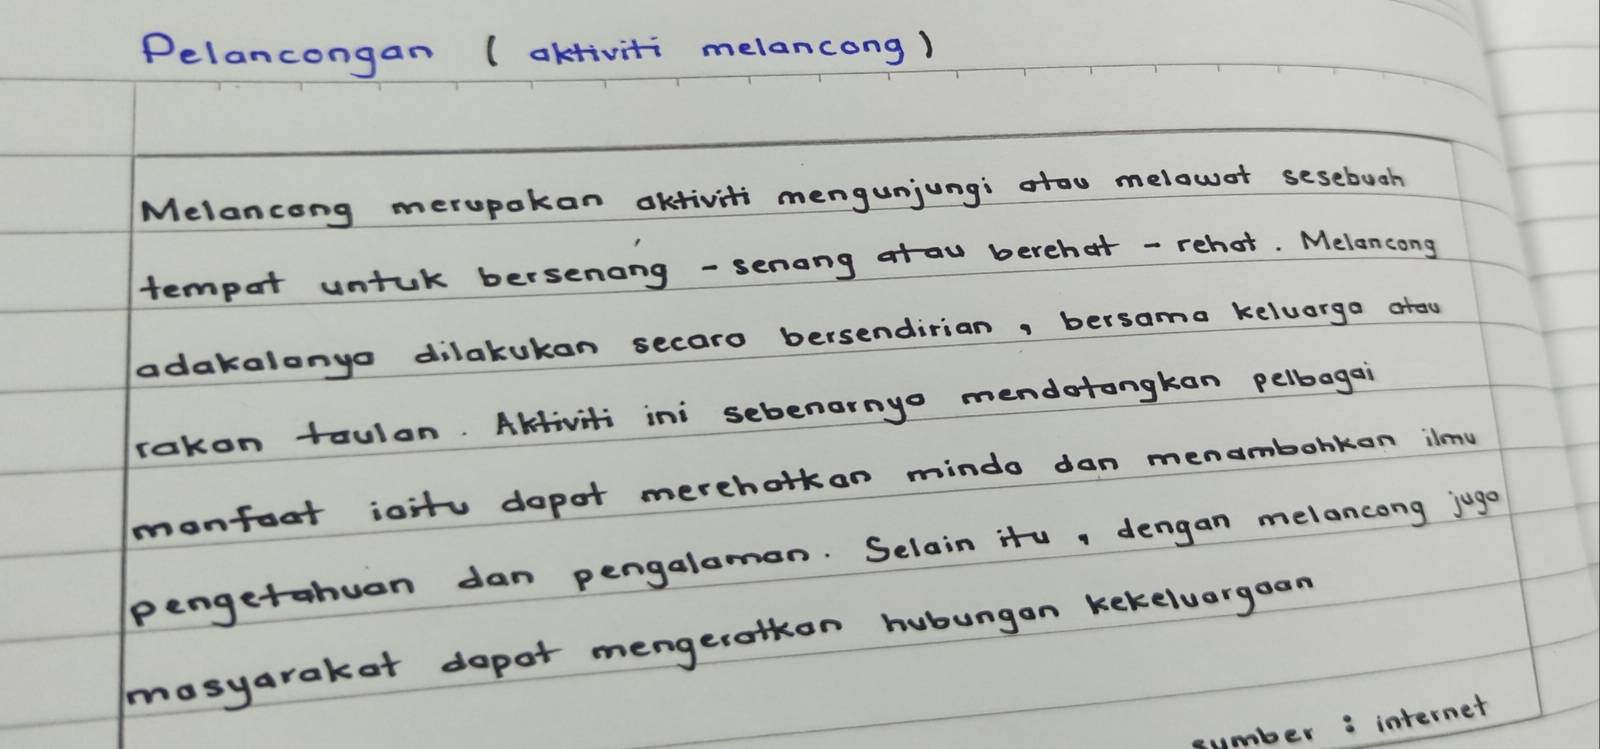 Pelancongan ( aktiviti melancong )
Melancong merupakan aktiviti mengunjungi atau melawat sesebuah
tempat untuk bersenang - senang atau berehat - rehat. Melancong
adakalanya dilakukan secara bersendirian, bersama keluarga atau
rakan taulan. Aktiviti ini sebenarnya mendatangkan pelbagai
manfaat iaitu dapat merehatkan minda dan menambahkan ilmu
pengetahuan dan pengalaman. Selain itu, dengan melancong juga
masyarakat dapat mengeratkan hubungan kekeluargaan
sumber : internet